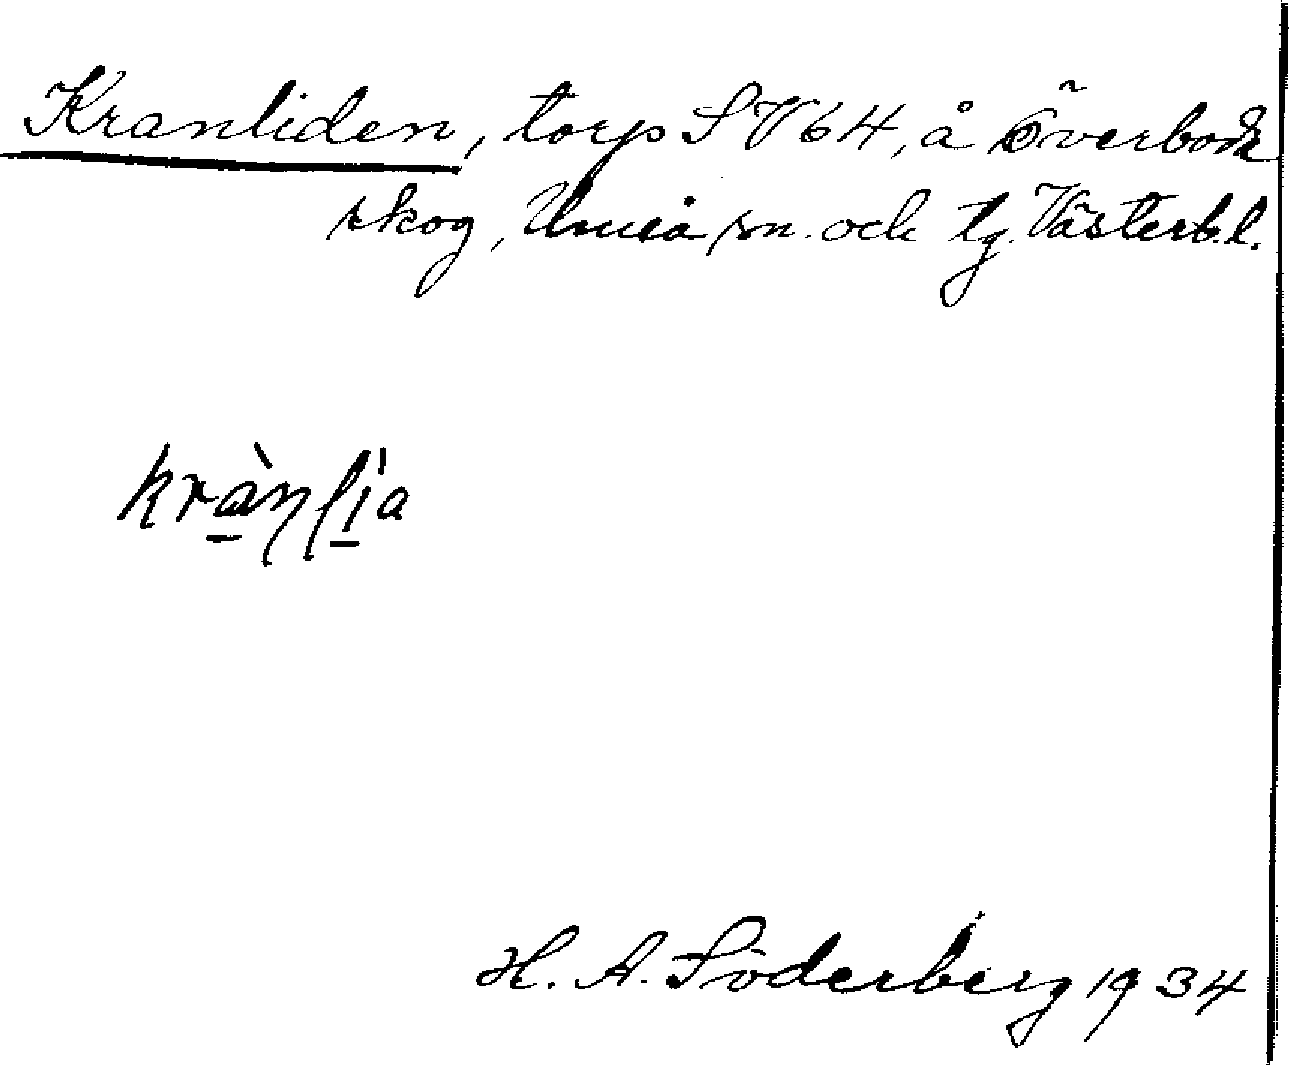 Kranliden, torp SV64, å Överboda
skog, Umeå sn. och tg. Västerb.l.
kràṉlìa
H. A. Söderberg 1934